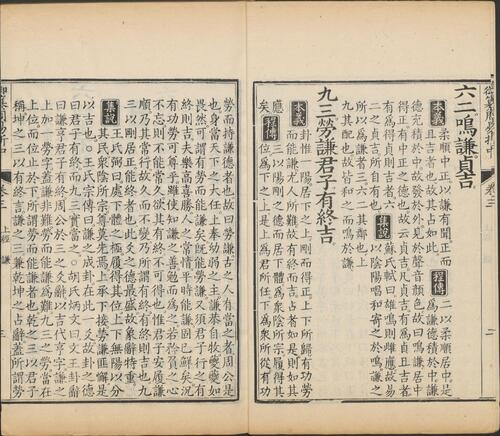 六二鳴謙貞吉
本義
柔順中正以謙有聞正而
且吉者也故其占如此
程傳
二以柔順居中是
為謙德積於中謙
德充積於中故發於外見於聲音顏色故曰鳴謙居中
得正有中正之德也故云貞吉凡貞吉有為貞且吉者
有為得貞則吉者六
二之貞吉所自有也
集說
蘇氏軾曰雄鳴則雌應故易
以陰陽唱和寄之於鳴謙之
所以為謙者三六其鄰也上
九其配也故皆和之而鳴於謙
九三勞謙君子有終吉
本義
卦惟一陽居下之上剛而得正上下所歸有功勞
而能謙尤人所難故有終而吉占者如是則如其
應矣
程傳
三以陽剛之德而居下體為衆陰所宗履得其
位為下之上是上為君所任下為衆所從有功
勞而持謙德者也故曰勞謙古之人有當之者周公是
也身當天下之大任上奉幼弱之主謙恭自牧夔夔如
畏然可謂有勞而能謙矣既能勞謙又須君子行之有
終則吉夫樂高喜勝人之常情平時能謙固已鮮矣況
有功勞可尊乎雖使知謙之善勉而為之若矜負之心
不忘則不能常久欲其有終不可得也惟君子安履謙
順乃其常行故久而不變乃所謂有終有終則吉也九
三以剛居正能終者也此爻之德最盛故象辭特重
集說
王氏弼曰處下體之極履得其位上下無陽以分
其民衆陰所宗尊莫先焉上承下接勞謙匪懈是
以吉也○王氏宗傳曰謙之成卦在此一爻故卦之德
曰君子有終而九三實當之○胡氏炳文曰文王卦辭
曰謙亨君子有終周公於三之爻辭以吉代亨字謙之
上加一勞字蓋謙非難勞而能謙為難九三之勞當在
上位而位止於下所謂勞而能謙者也乾之三以君子
稱坤之三以有終言謙之三兼乾坤之占辭蓋所謂勞
卷三 上經 謙 三